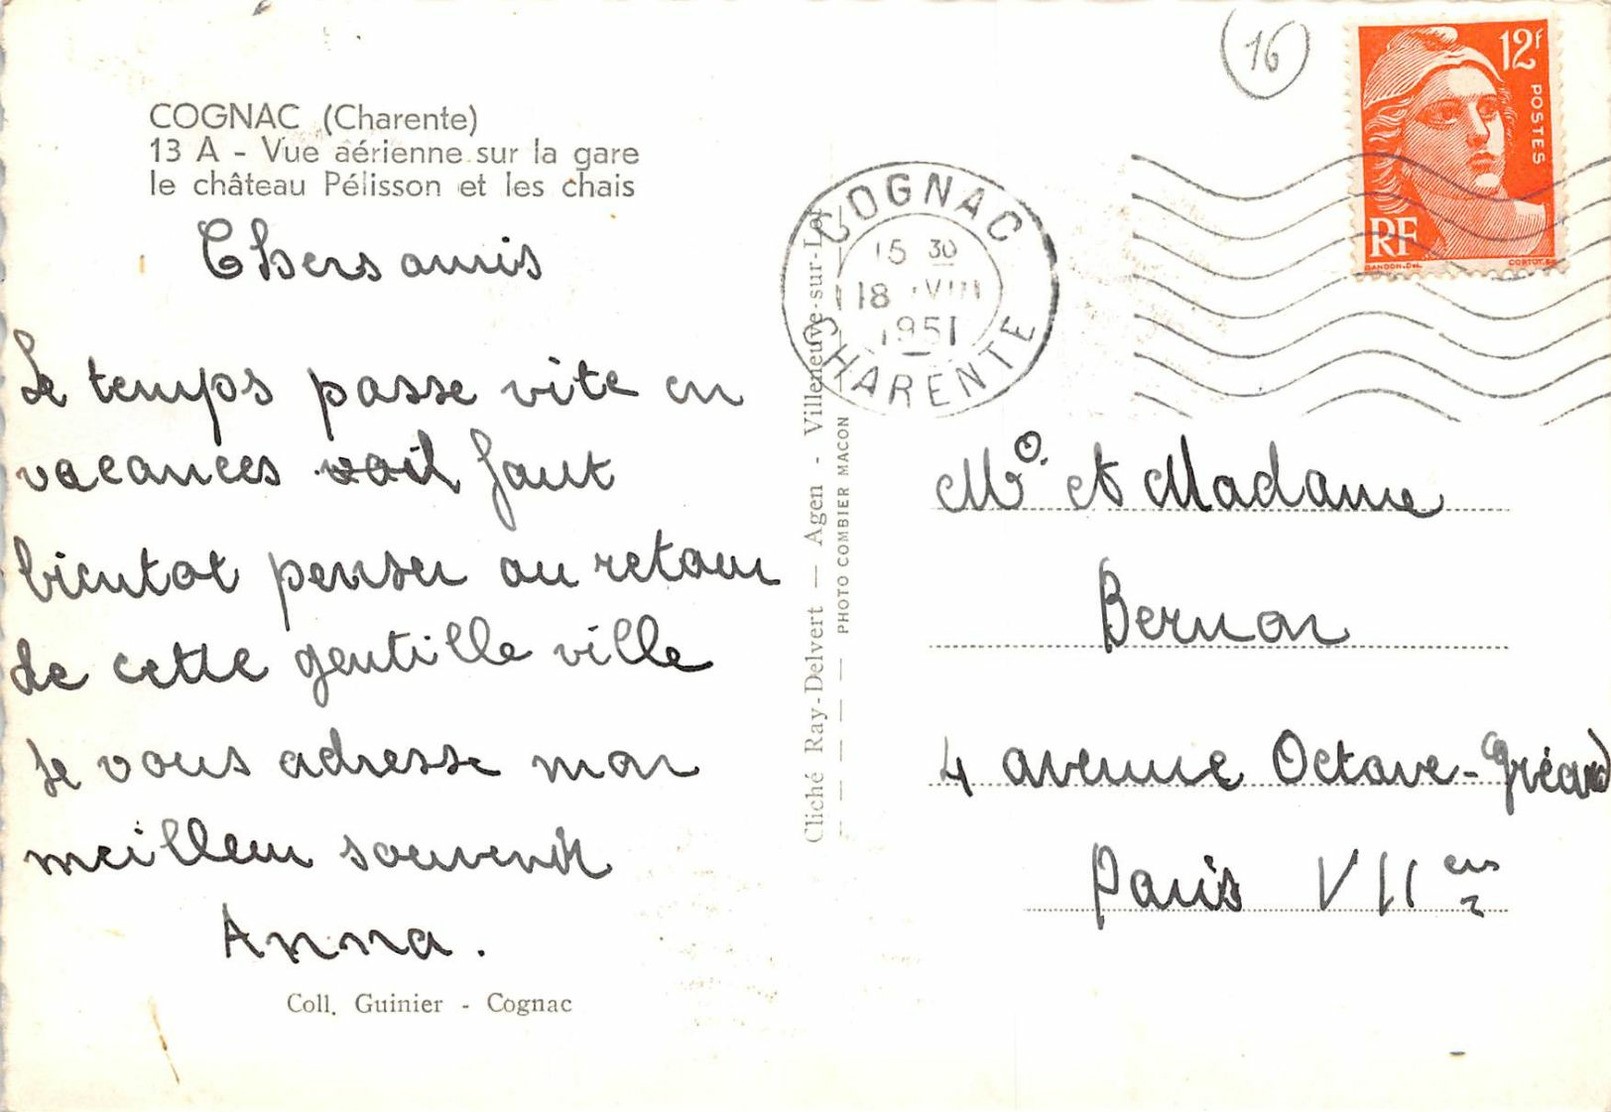 COGNAC (Charente)
13 A - Vue aérienne sur la gare
le château Pélisson et les chais
Chers amis
Le temps passe vite en
vacances faut
bientot penser au retour
de cette gentille ville
Je vous adresse mon
meilleur souvenir
Anna.
Coll. Guinier - Cognac
Cliché Ray-Delvert — Agen - Villeneuve-sur-Lot
— — — — PHOTO COMBIER MACON
COGNAC
15 30
18 VIII
1951
CHARENTE
16
12F
POSTES
RF
GANDON.DEL.
CORTOT.SC
Mr. et Madame
Bernon
4 avenue Octave-Gréard
Paris VII